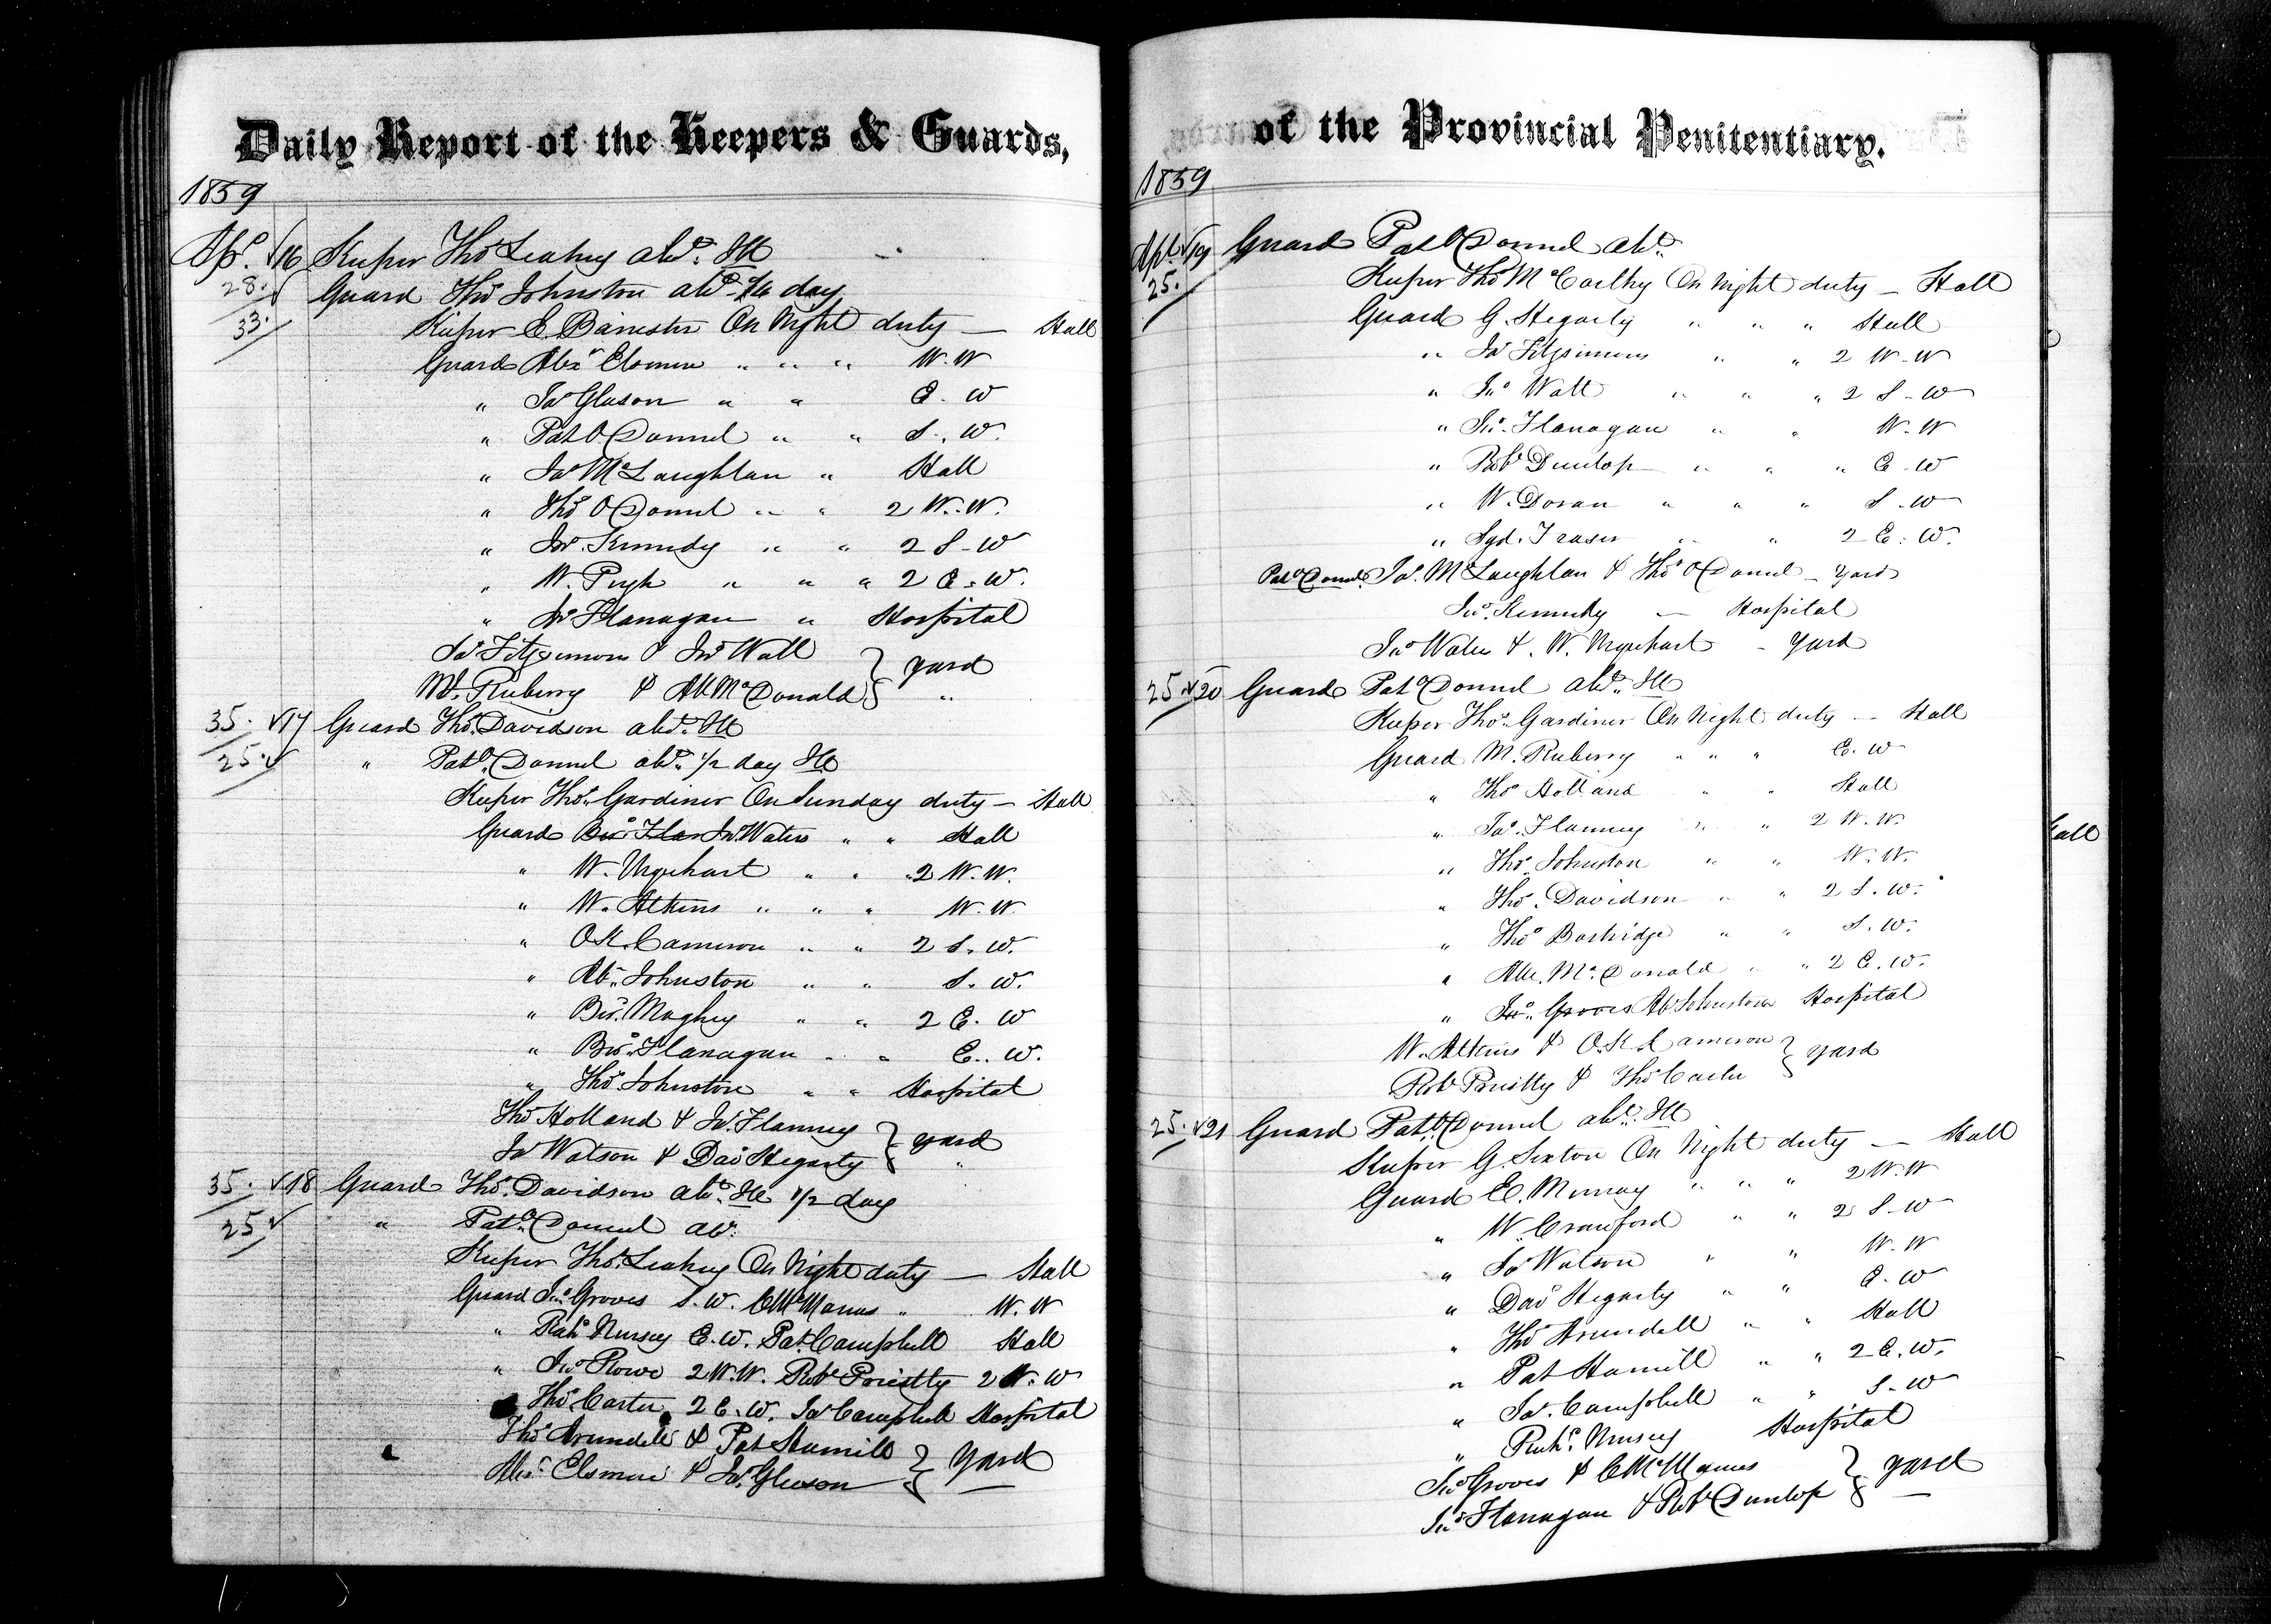 Daily Report of the Keepers & Guards,
1859
Apl. √16 Keeper Thos Leahey abst. Ill
28. √ Guard Thos Johnston abst 1/4 day
33. Keeper E. Banister On Night duty — Hall
Guard Alexr Elsmere " " " W. W
" Jas Gleson " " E. W
" Pat O Donnel " " S. W.
" Jas McLaughlan " Hall
" Thos O Donnel " " 2 W. W.
" Jno. Kennedy " " 2 S. W
" W. Pugh " " " 2 E. W.
" Jno Flanagan " Hospital
Jas Fitzsimons & Jno Watt } yard
Md. Ruberry & All McDonald "
35. √17 Guard Thos. Davidson abst. Ill
25. √ " Pat O Donnel abst. 1/2 day Ill
Keeper Thos. Gardiner On Sunday duty — Hall
Guard Bd. Flan Jno Waters " " Hall
" W. Urquhart " " 2 W. W.
" W. Atkins " " " W. W.
" O.K. Cameron " " 2 S. W.
" Ab. Johnston " " S. W.
" Bd. Maghey " " 2 E. W
" Bd. Flanagan " " E. W.
" Thos. Johnston " " Hospital
Thos Holland & Jas. Flannery } yard
Jas Watson & Davd Hegarty "
35. √18 Guard Thos. Davidson abst. Ill 1/2 day
25 √ " Pat O Donnel abst.
Keeper Thos. Leahey On Night duty — Hall
Guard Jno Groves S. W. C McManus " W. W
" Richd Nursey E. W. Pat Campbell Hall
" Jno Rowe 2 W. W. Robt Priestly 2 W. W
Thos Carter 2 E. W. Jas Campbell Hospital
Thos Arundell & Pat Hamill } yard
Alexr. Elsmere & Jas. Gleeson
of the Provincial Penitentiary.
1859
Apl. √19 Guard Pat O Donnel abst.
25. Keeper Thos McCarthy On Night duty — Hall
Guard G. Hegarty " " " Hall
" Jas Fitzsimons " " 2 W. W
" Jno Watt " " " 2 S. W
" Jno. Flanagan " " W. W
" Robt Dunlop " " " E. W
" W. Doran " " " S. W
" Syd. Fraser " " 2 E. W.
Pat O Donnel Jas. McLaughlan & Thos O Donnel — yard
Jno. Kennedy — Hospital
Jno Waters & W. Urquhart - yard
25 √20 Guard Pat O Donnel abst. Ill
Keeper Thos. Gardiner On Night duty — Hall
Guard M. Ruberry " " " E. W
" Thos Holland " " Hall
" Jas. Flannery " " 2 W. W.
" Thos. Johnston " " W. W.
" Thos. Davidson " " 2 S. W.
" Thos Bostridge " " S. W.
" All. McDonald " " 2 E. W.
" Jno. Groves Ab Johnston Hospital
W. Atkins & O.K. Cameron } yard
Robt Priestly & Thos Carter
25. √21 Guard Pat O Donnel abst. Ill
Keeper G. Sexton On Night duty — Hall
Guard E. Murray " " " 2 W. W
" W. Crawford " " 2 S. W
" Jas Watson " " W. W
" Davd Hegarty " " E. W
" Thos Arundell " " Hall
" Pat Hamill " " 2 E. W.
" Jas. Campbell " " S. W
" Richd. Nursey Hospital
Jno Groves & C McManus } yard
Jno Flanagan & Robt Dunlop
Hall